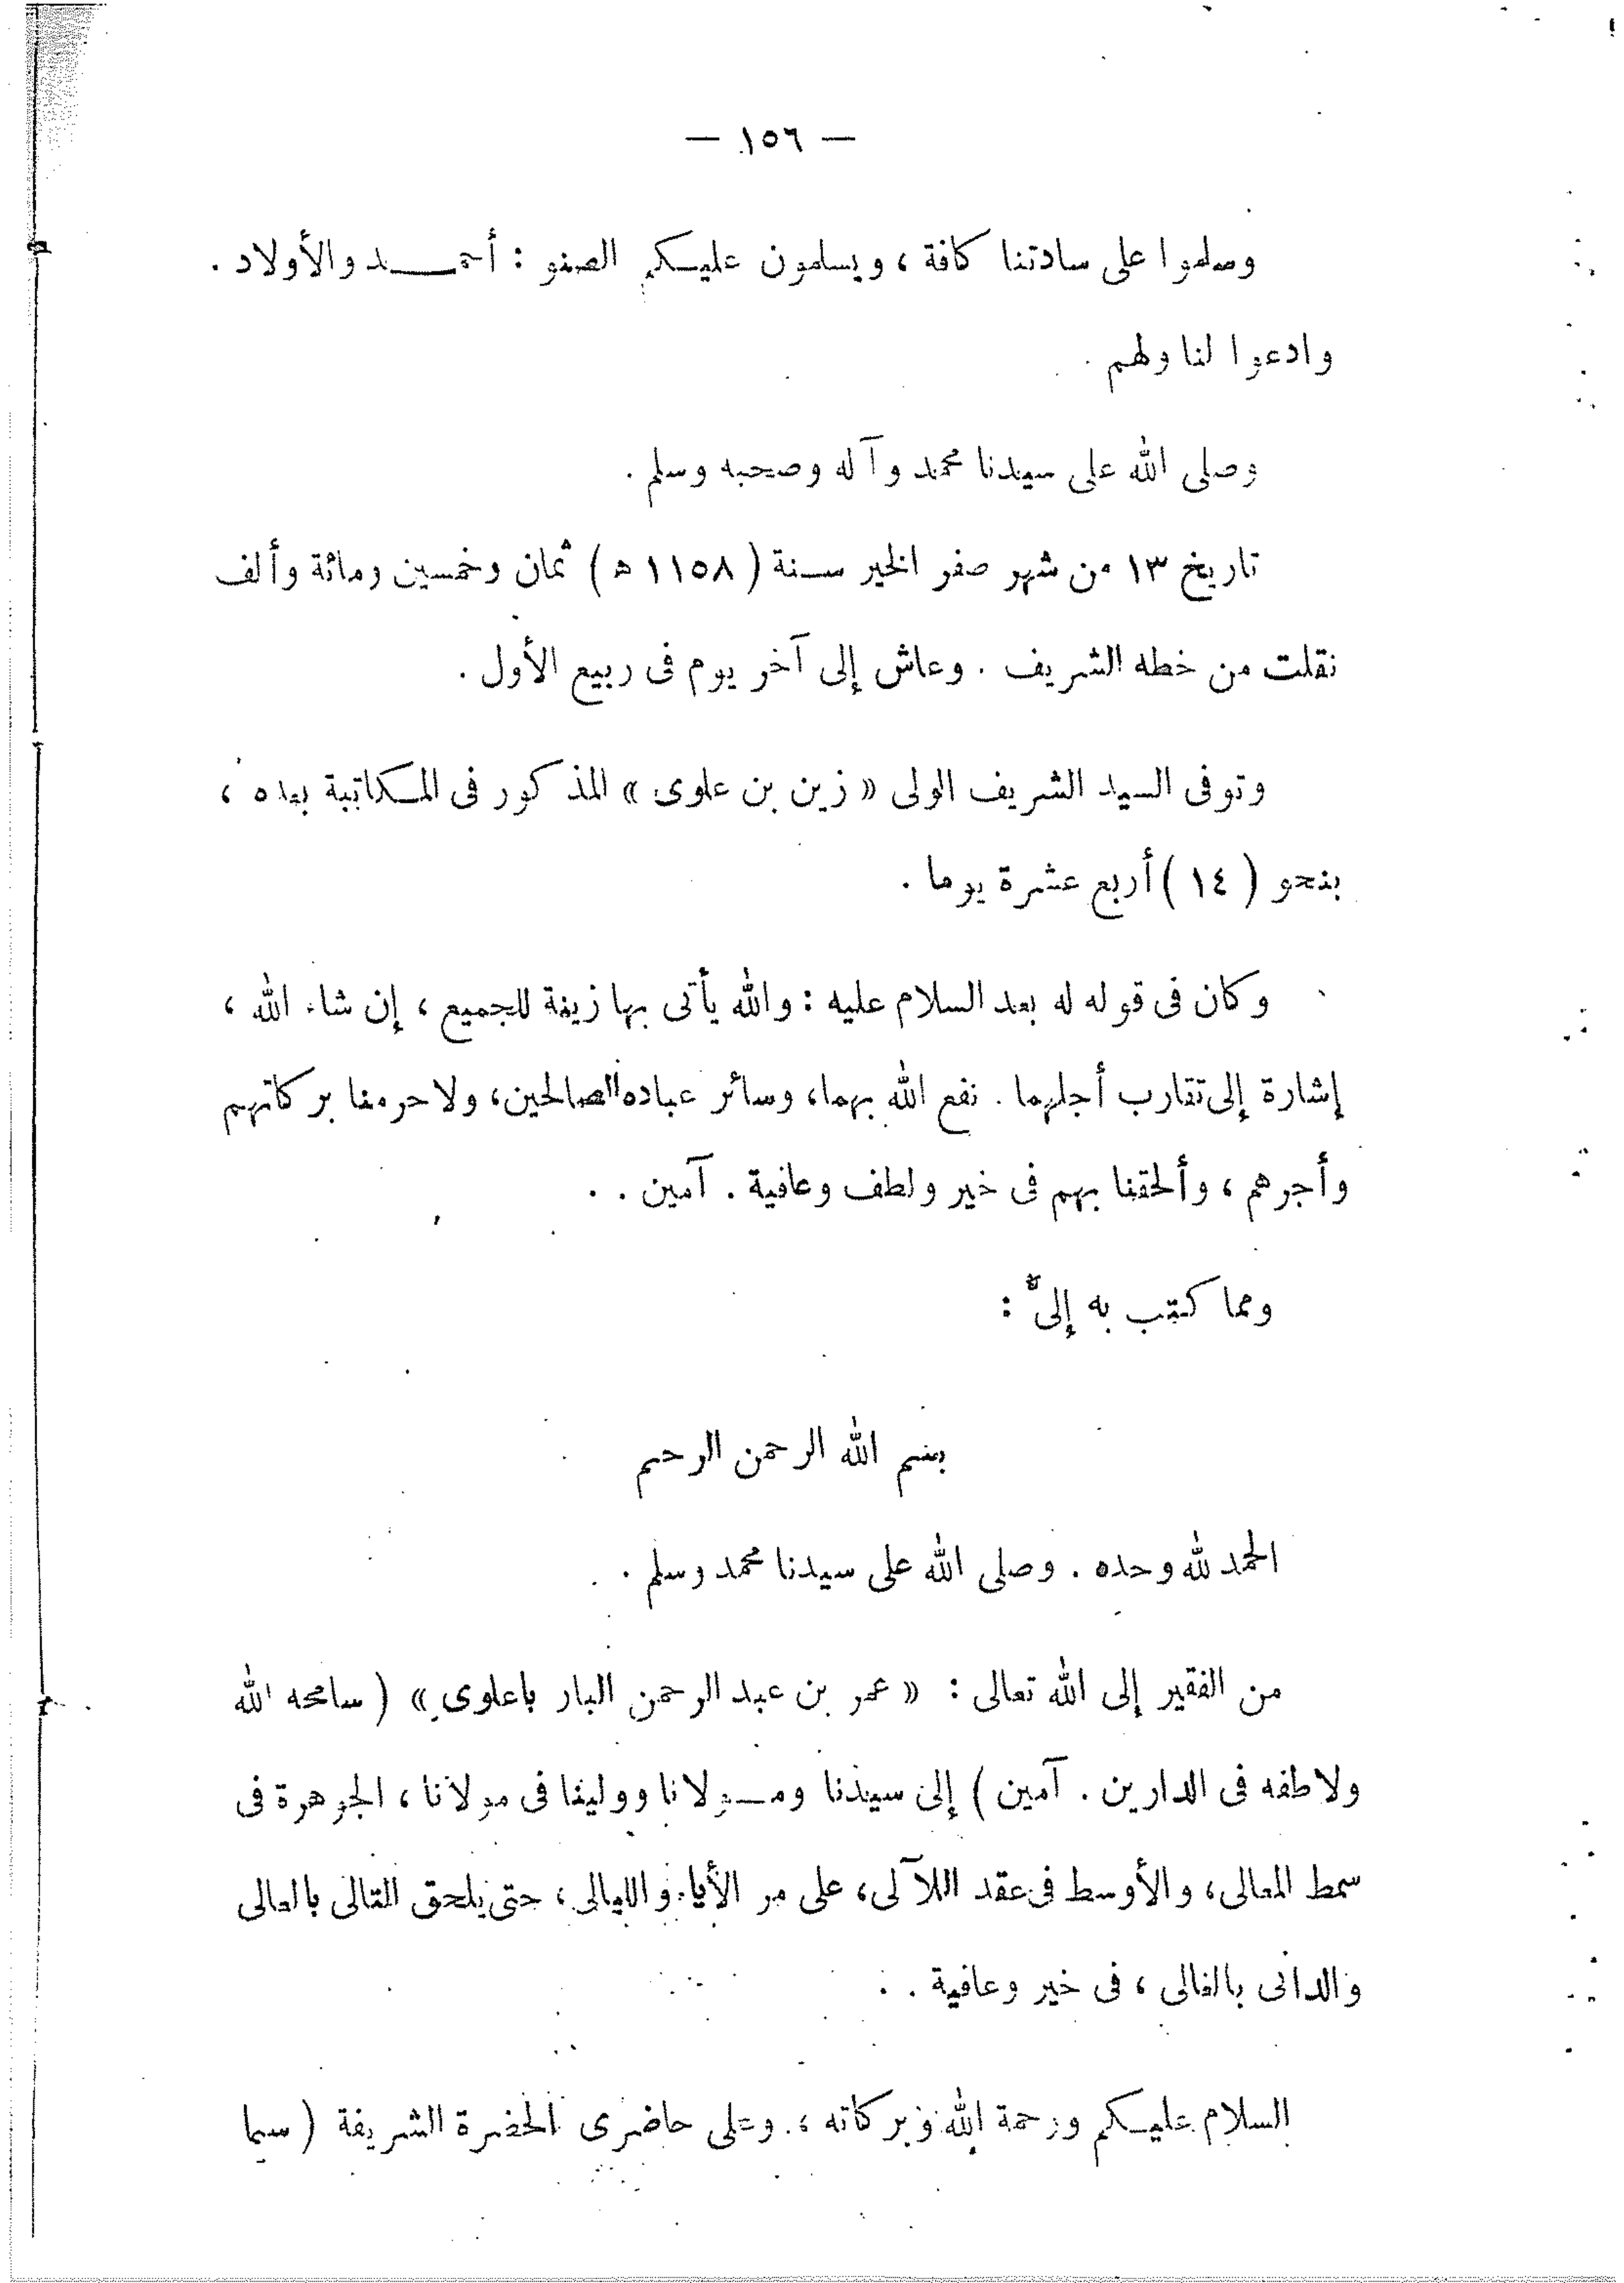 — ١٥٦ —
وسلموا على سادتنا كافة ، ويسلمون عليكم الصنو : أحمد والأولاد .
وادعوا لنا ولهم .
وصلى الله على سيدنا محمد وآله وصحبه وسلم .
تاريخ ١٣ من شهر صفر الخير سنة ( ١١٥٨ ه ) ثمان وخمسين ومائة وألف
نقلت من خطه الشريف . وعاش إلى آخر يوم فى ربيع الأول .
وتوفى السيد الشريف الولى « زين بن علوى » المذكور فى المكاتبة بعده ،
بنحو ( ١٤ ) أربع عشرة يوما .
وكان فى قوله له بعد السلام عليه : والله يأتى بها زينة للجميع ، إن شاء الله ،
إشارة إلى تقارب أجلهما . نفع الله بهما ، وسائر عباده الصالحين ، ولا حرمنا بركاتهم
وأجرهم ، وألحقنا بهم فى خير ولطف وعافية . آمين . .
ومما كتب به إلىَّ :
بسم الله الرحمن الرحيم
الحمد لله وحده . وصلى الله على سيدنا محمد وسلم .
من الفقير إلى الله تعالى : « عمر بن عبد الرحمن البار باعلوى » ( سامحه الله
ولاطفه فى الدارين . آمين ) إلى سيدنا ومولانا وولينا فى مولانا ، الجوهرة فى
سمط المعالى ، والأوسط فى عقد اللآلى ، على مر الأيام والليالى ، حتى يلحق التالى بالعالى
والدانى بالغالى ، فى خير وعافية . .
السلام عليكم ورحمة الله وبركاته ، وعلى حاضرى الحضرة الشريفة ( سيما